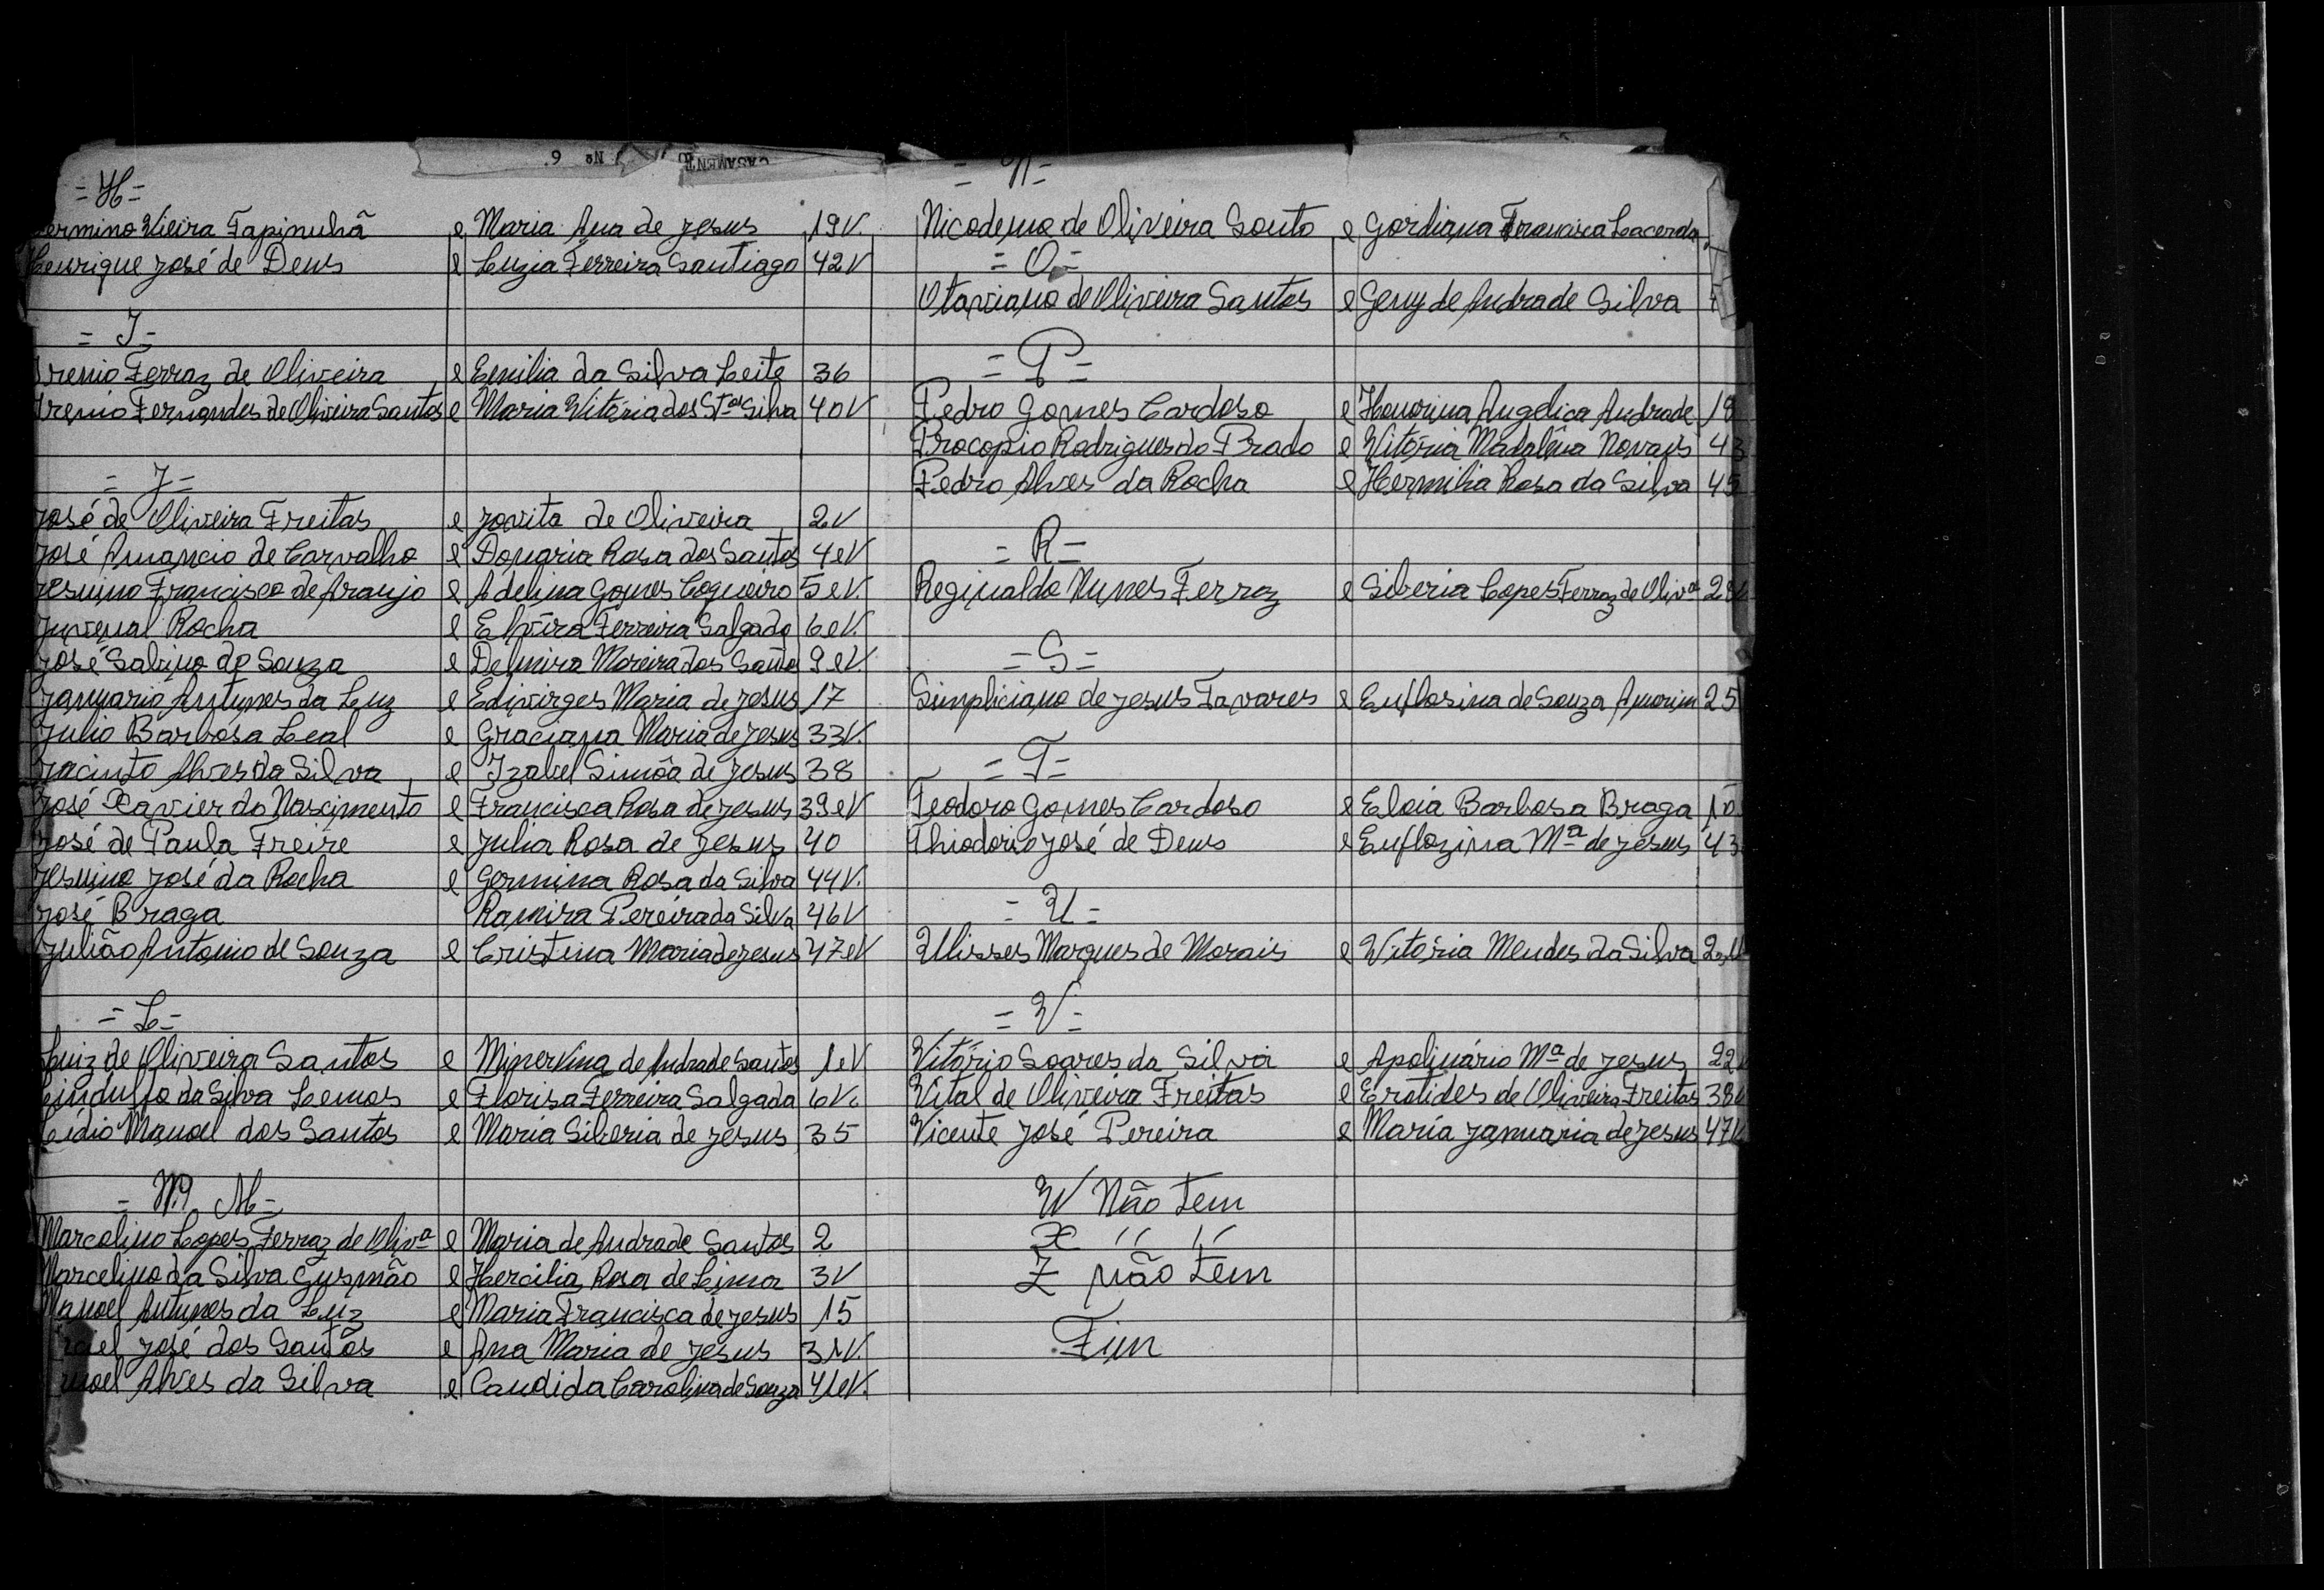 CASAMENTO Nº 6.
= H =
ermino Vieira Tapinuhã e Maria Ana de Jesus 19V.
Henrique José de Deus e Luzia Ferreira Santiago 42V
= I =
Irenio Ferraz de Oliveira e Emilia da Silva Leite 36
Irenio Fernandes de Oliveira Santos e Maria Vitória dos Stos Silva 40V
= J =
José de Oliveira Freitas e Jovita de Oliveira 2V
José Amancio de Carvalho e Donaria Rosa dos Santos 4eV
Jesuino Francisco de Araujo e Adelina Gomes Coqueiro 5eV.
Juvenal Rocha e Elvira Ferreira Salgado 6eV.
José Sabino de Souza e Delmira Moreira dos Santos 9eV.
Januario Antunes da Luz e Edivirges Maria de Jesus 17
Julio Barbosa Leal e Graciana Maria de Jesus 33V.
Jacinto Alves da Silva e Izabel Simôa de Jesus 38
José Xavier do Nascimento e Francisca Rosa de Jesus 39eV
José de Paula Freire e Julia Rosa de Jesus 40
Jesuino José da Rocha e Germina Rosa da Silva 44V.
José Braga Ramira Pereira da Silva 46V
Julião Antonio de Souza e Cristina Maria de Jesus 47eV
= L =
Luiz de Oliveira Santos e Minervina de Andrade Santos 1eV
Lindulfo da Silva Lemos e Florisa Ferreira Salgada 6V.
Lidio Manoel dos Santos e Maria Siberia de Jesus 35
= M M =
Marcolino Lopes Ferraz de Olivª e Maria de Andrade Santos 2
Marcelino da Silva Gusmão e Hercilia Rosa de Lima 3V
Manoel Antunes da Luz e Maria Francisca de Jesus 15
José dos Santos e Ana Maria de Jesus 31V.
noel Alves da Silva e Candida Carolina de Souza 41eV.
= N =
Nicodemo de Oliveira Souto e Gordiana Francisca Lacerda
= O =
Otaviano de Oliveira Santos e Geny de Andrade Silva
= P =
Pedro Gomes Cardoso e Honorina Angelica Andrade 18
Procopio Rodrigues do Prado e Vitória Madalena Novaes 43
Pedro Alves da Rocha e Hermilia Rosa da Silva 45
= R =
Reginaldo Nunes Ferraz e Siberia Lopes Ferraz de Olivª 28V
= S =
Simpliciano de Jesus Tavares e Euflosina de Souza Amorim 25
= T =
Teodoro Gomes Cardoso e Eloia Barbosa Braga 10
Thiodorio José de Deus e Euflozina Mª de Jesus 43
= U =
Ulisses Marques de Morais e Vitória Mendes da Silva
= V =
Vitório Soares da Silva e Apolinário Mª de Jesus 22V
Vital de Oliveira Freitas e Erotides de Oliveira Freitas 38V
Vicente José Pereira e Maria Januaria de Jesus 47V
W Não tem
X ´´ ´´
Z não tem
Fim